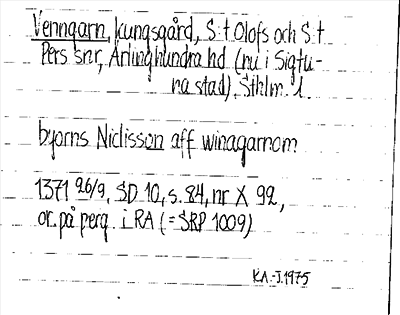 Venngarn, kungsgård, S:t Olofs och S:t
Pers snr, Ärlinghundra hd (nu i Sigtu-
na stad), Sthlm. l.
byorns Niclisson aff winagarnom
1371 26/9, SD 10, s. 84, nr X 92,
or. på perg. i RA (= SRP 1009)
KA.-J. 1975